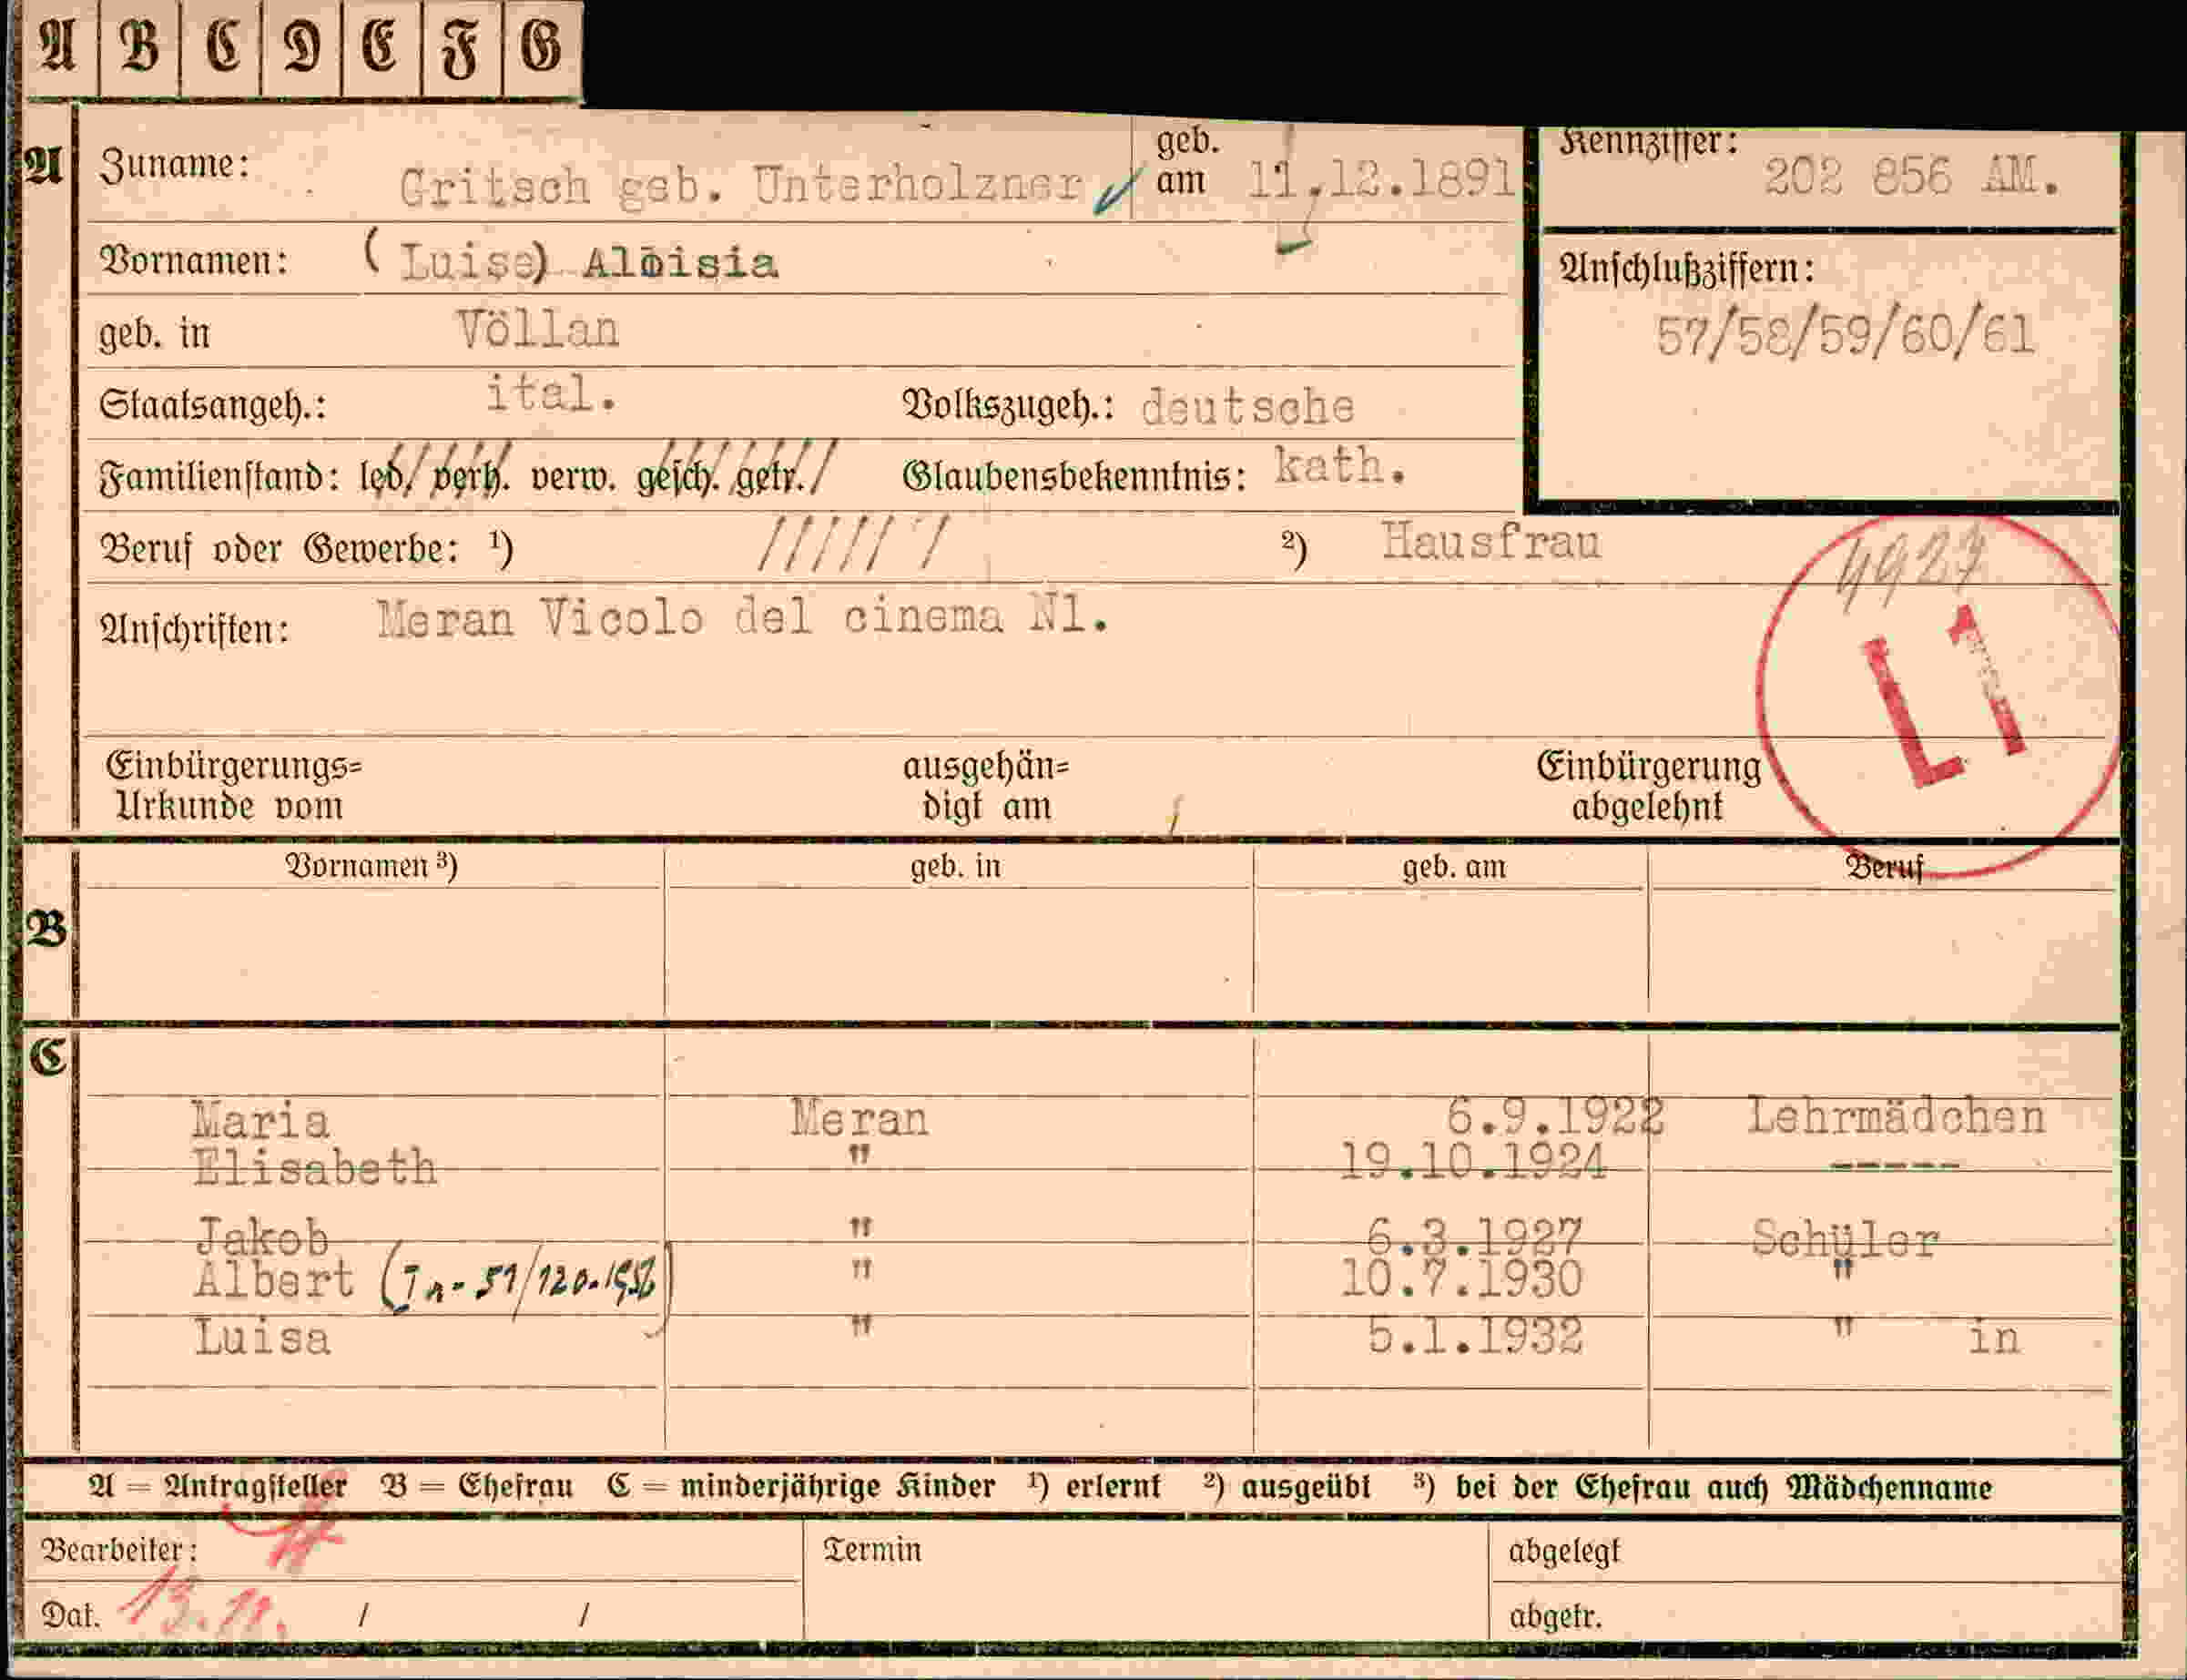 A B C D E F G
A Zuname: Gritsch geb. Unterholzner geb. am 11.12.1891 Kennziffer: 202 856 AM.
Vornamen: (Luise) Aloisia Anschlußziffern:
geb. in Völlan 57/58/59/60/61
Staatsangeh.: ital. Volkszugeh.: deutsche
Familienstand: led. verh. verw. gesch. getr. Glaubensbekenntnis: kath.
Beruf oder Gewerbe: ¹) /////// ²) Hausfrau 4927
Anschriften: Meran Vicolo del cinema N1. L1
Einbürgerungs= ausgehän= Einbürgerung
Urkunde vom digt am abgelehnt
Vornamen ³) geb. in geb. am Beruf
B
C
Maria Meran 6.9.1922 Lehrmädchen
Elisabeth " 19.10.1924 -----
Jakob " 6.3.1927 Schüler
Albert " 10.7.1930 "
Luisa " 5.1.1932 " in
A = Antragsteller B = Ehefrau C = minderjährige Kinder ¹) erlernt ²) ausgeübt ³) bei der Ehefrau auch Mädchenname
Bearbeiter: Termin abgelegt
Dat. 13.11. / / abgetr.